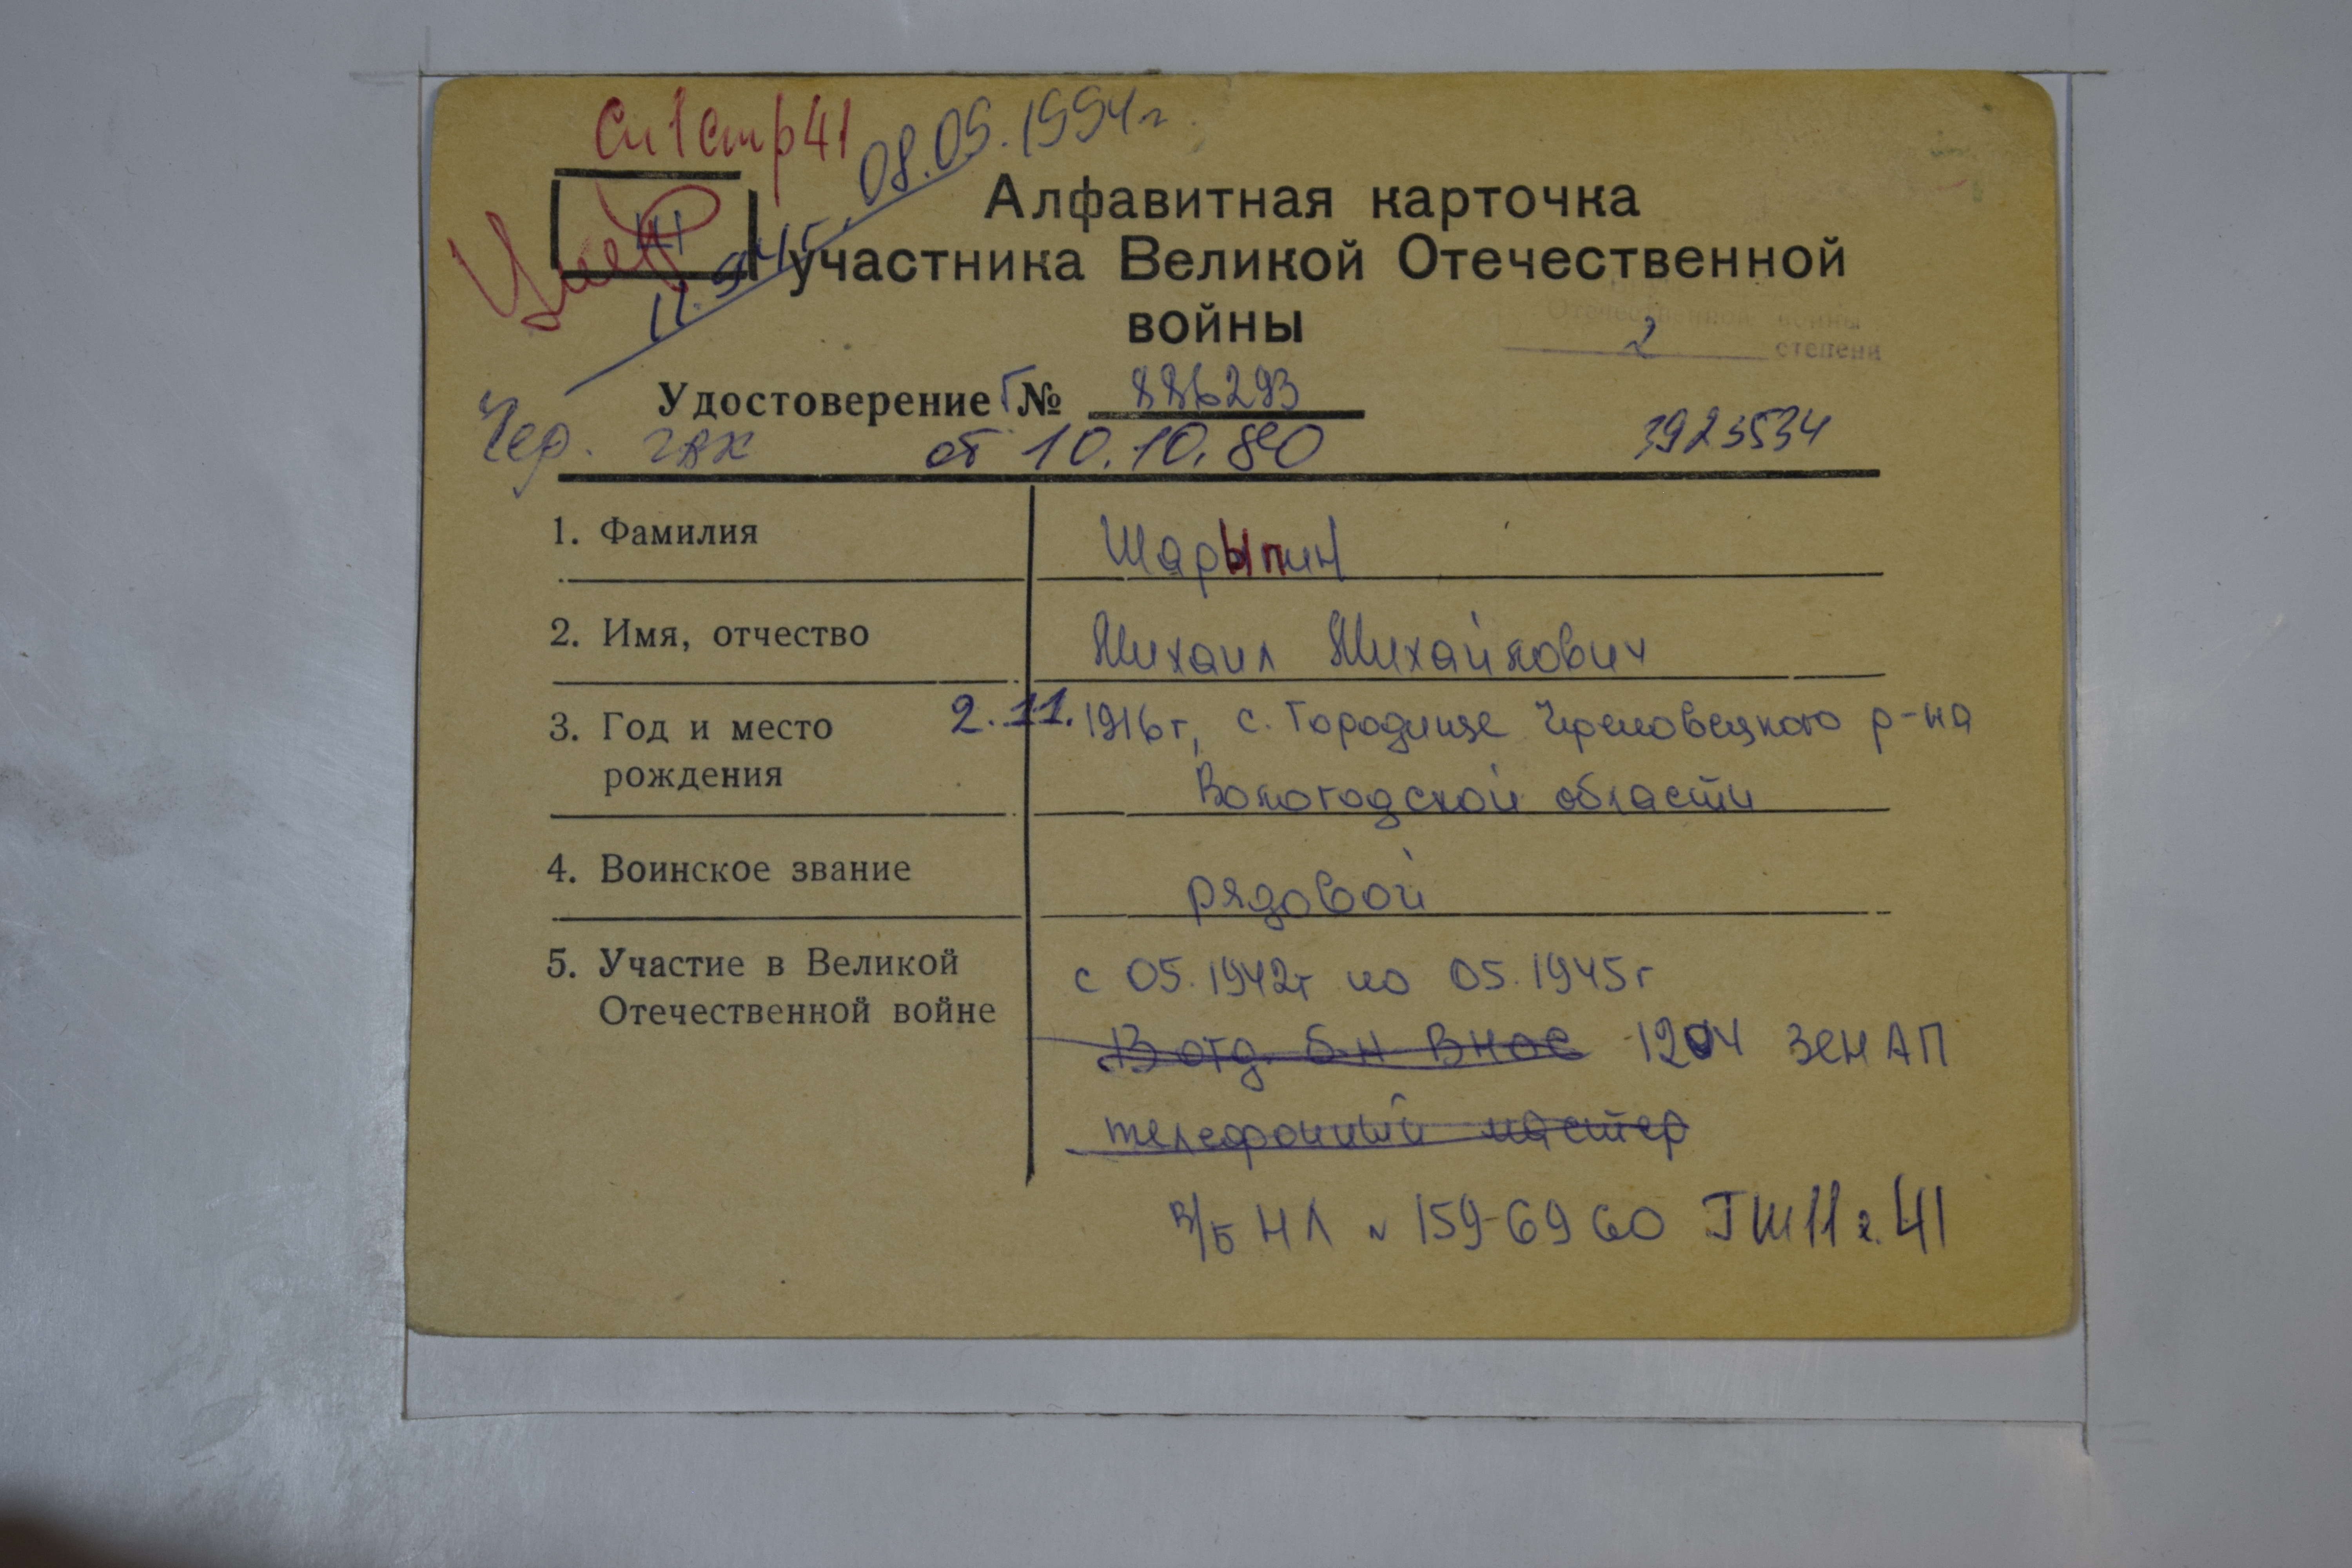 Сп 1 стр 41
08.05.1994г.
Умер
III
11.94г.
Алфавитная карточка
участника Великой Отечественной
войны
Отечественной войны
2 степени
Удостоверение Г № 886293
Чер. гвк от 10.10.80 3923534
1. Фамилия Шарыпин
2. Имя, отчество Михаил Михайлович
3. Год и место 2.11.1916г, с. Городище Череповецкого р-на
рождения Вологодской области
4. Воинское звание рядовой
5. Участие в Великой с 05.1942г по 05.1945г
Отечественной войне
13 отд. б-н ВНОС 1204 ЗЕН АП
телефонный мастер
В/Б НЛ N 159-69 60 ГШ 11 г. 41